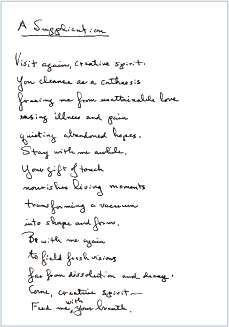 A Supplication
Visit again, creative spirit.
You cleanse as a catharsis
freeing me from unattainable love
easing illness and pain
quieting abandoned hopes.
Stay with me awhile.
Your gift of touch
nourishes living moments
transforming a vacuum
into shape and form.
Be with me again
to field fresh visions
far from dissolution and decay.
Come, creative spirit—
Feed me with your breath.